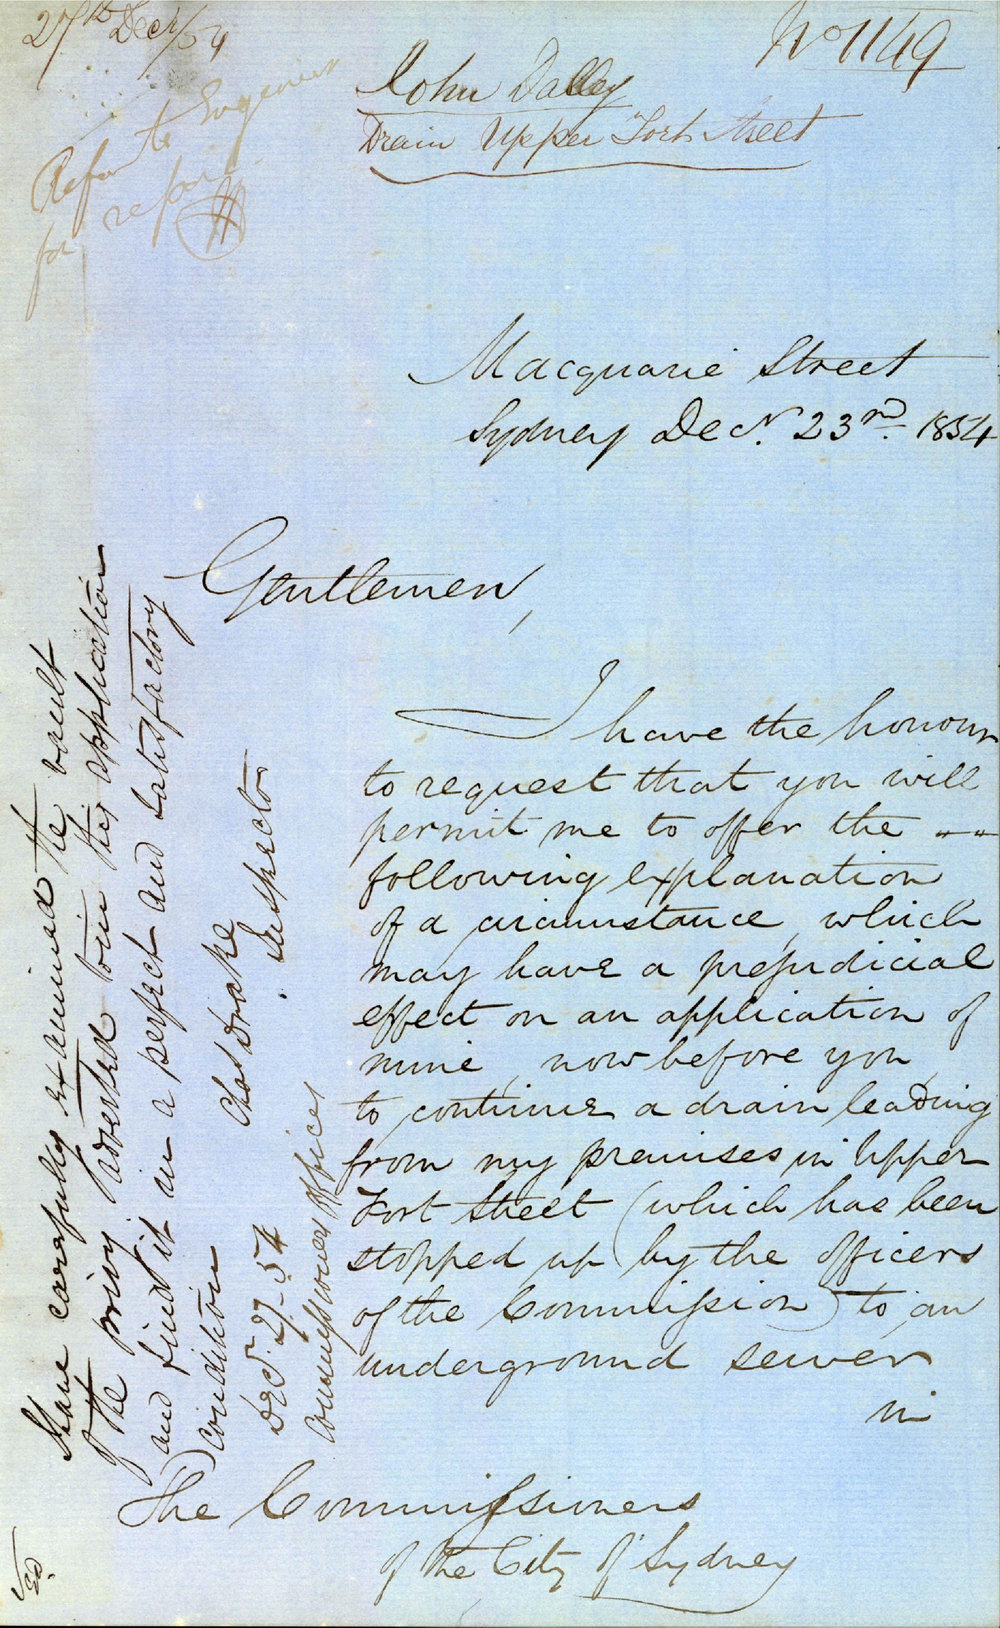 27th Decr/54
No 1149
John Dalley
Drain Upper Fort Street
Refer to Engineer
for report
Macquarie Street
Sydney Decr. 23rd. 1854
Gentlemen,
I have the honour
to request that you will
permit me to offer the
following explanation
of a circumstance, which
may have a prejudicial
effect on an application of
mine, now before you,
to continue a drain leading
from my premises in Upper
Fort Street (which has been
stopped up by the officers
of the Commission) to an
underground sewer
in
The Commissioners
of the City of Sydney
Have carefully examined the vault
of the privy adverted to in this application
and find it in a perfect and satisfactory
condition
Chas Drake
Inspector
Decr. 27. 54
Commissioners Offices